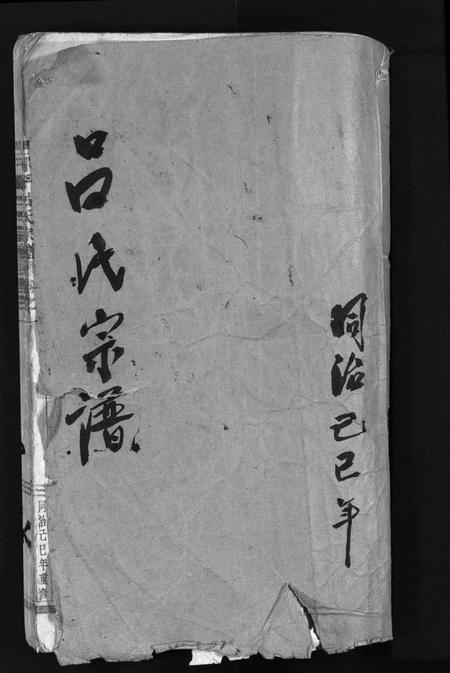 同治己巳年
吕氏宗譜
同治己巳年重修